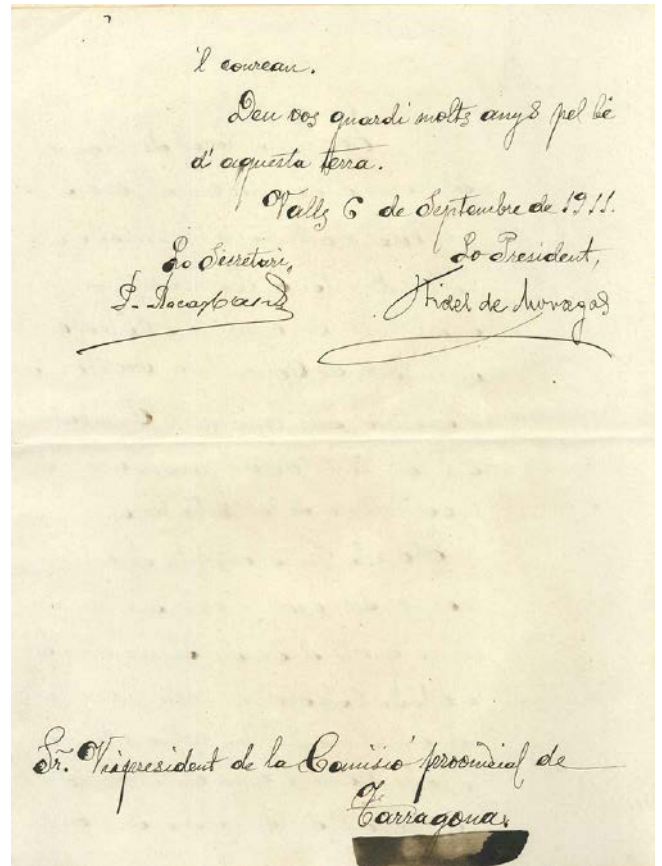 'l courean.
Deu vos guardi molts anys pel bé
d'aquesta terra.
Valls 6 de Septembre de 1911.
Lo Secretari,
Lo President,
P.
Fidel de Moragas
Sr. Vispresident de la Comisió provincial de
Tarragona.